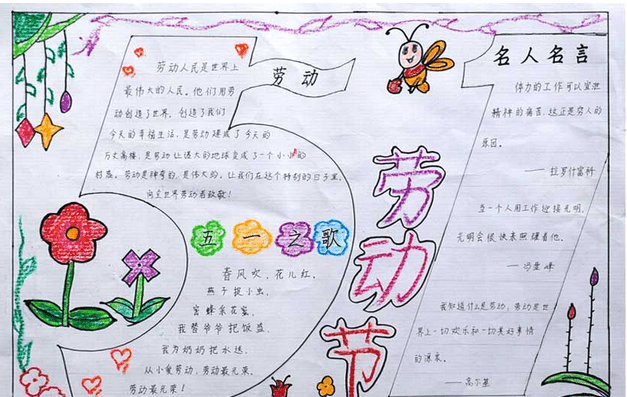 劳动
劳动人民是世界上
最伟大的人民。他们用劳
动创造了世界。创造了我们
今天的幸福生活,是劳动建成了今天的
万丈高楼,是劳动让偌大的地球变成了一个小小的
村庄。劳动是神奇的,是伟大的。让我们在这个特别的日子里,
向全世界劳动者致敬!
五一之歌
春风吹,花儿红,
燕子捉小虫,
蜜蜂采花蜜,
我帮爷爷把饭盛
我为奶奶把水送,
从小爱劳动,劳动最光荣,
劳动最光荣!
劳动节
名人名言
体力的工作可以
精神的痛苦,这正是穷人的
原因。
——拉罗什富科
当一个人用工作迎接光明,
光明会很快来照耀着他。
——冯学峰
我知道什么是劳动,劳动是世
界上一切欢乐和一切美好事情
的源泉。
——高尔基